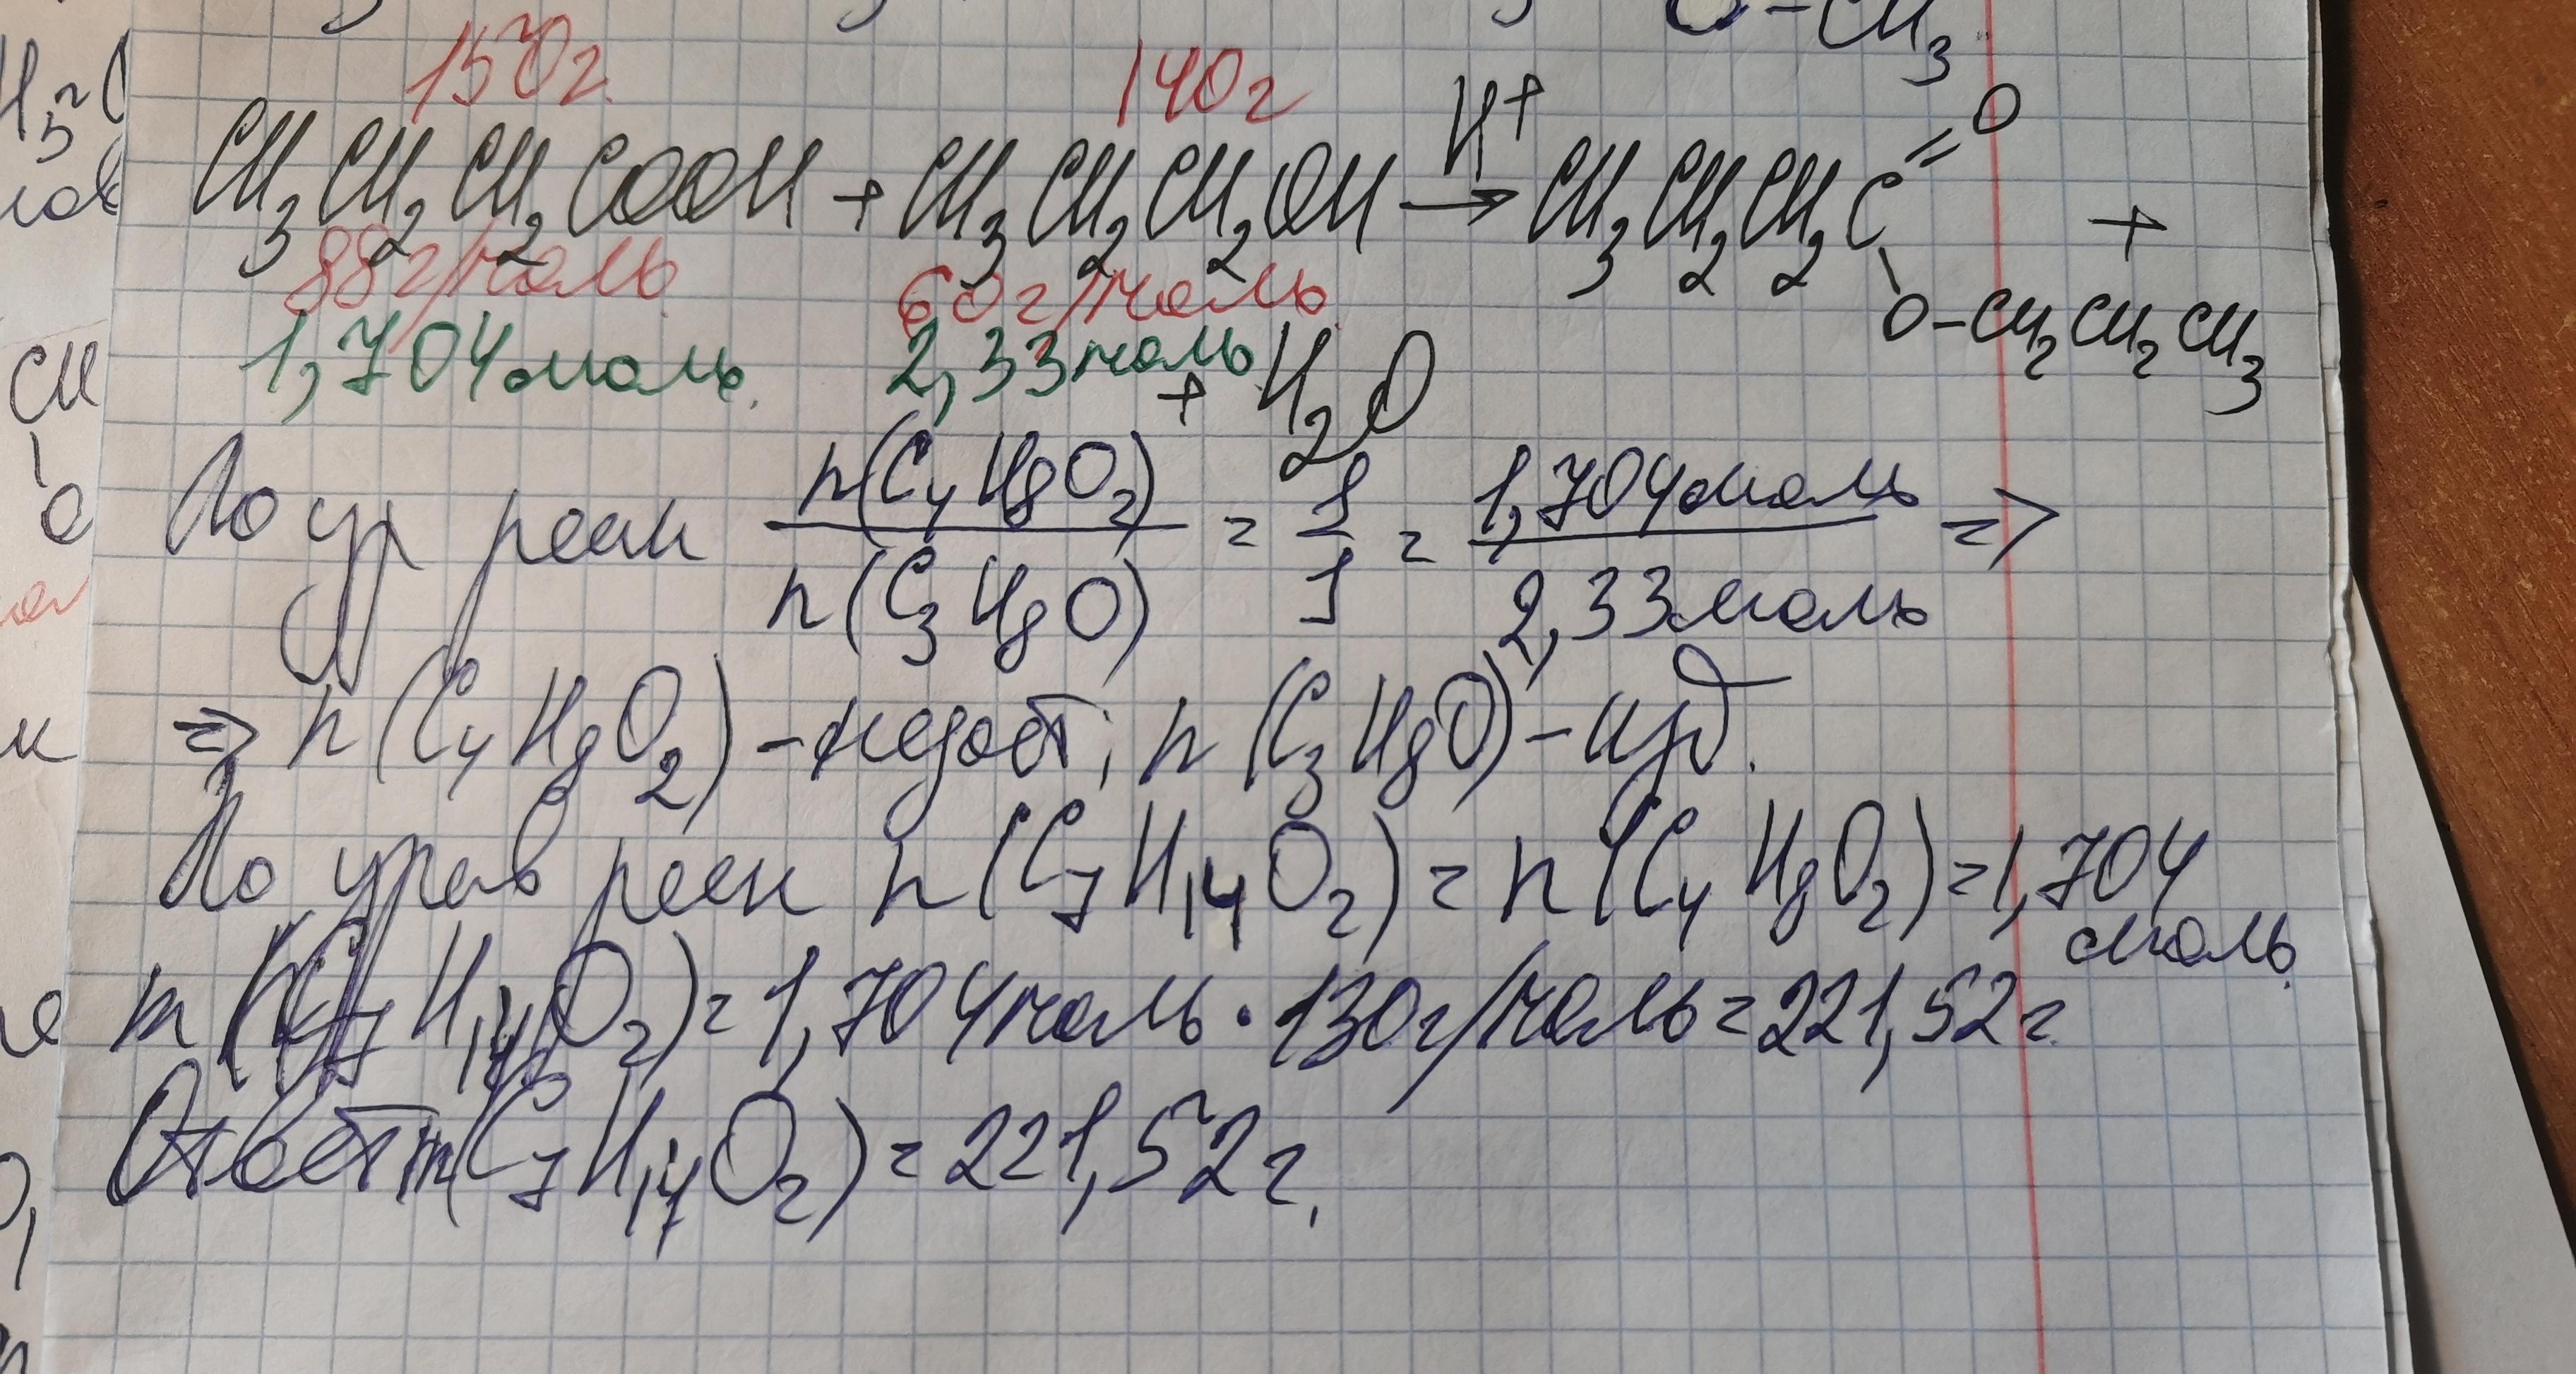 O-CH3
150г. 140г
CH3CH2CH2COOH + CH3CH2CH2OH →(H+) CH3CH2CH2C=O +
88г/моль 60г/моль O-CH2CH2CH3
1,704моль. 2,33моль + H2O
По ур реак n(C4H8O2)/n(C3H8O) = 1/1 = 1,704моль/2,33моль =>
=> n(C4H8O2) - недост; n(C3H8O) - изб.
По урав реак n(C7H14O2) = n(C4H8O2) = 1,704
моль.
m(C7H14O2) = 1,704моль · 130г/моль = 221,52г.
Ответ m(C7H14O2) = 221,52г.